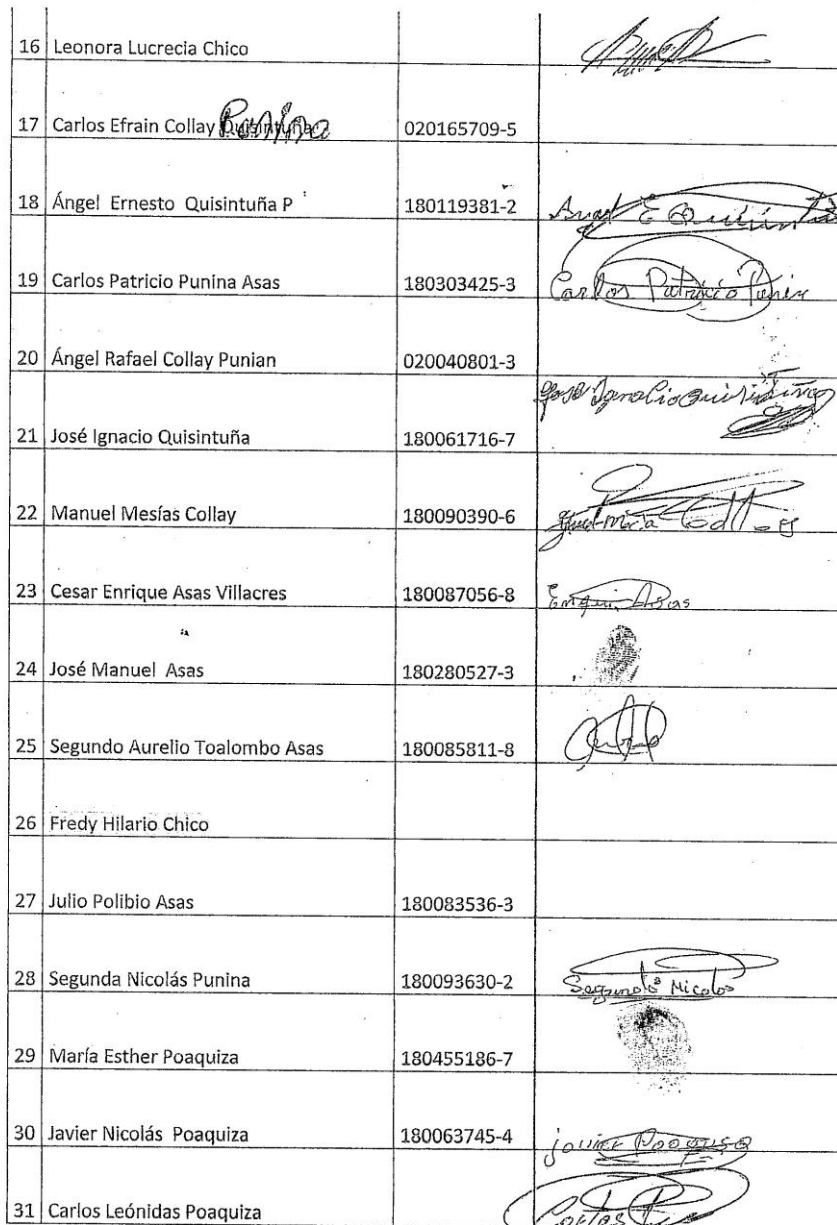 16 Leonora Lucrecia Chico
17 Carlos Efrain Collay Quisintuña Punina 020165709-5
18 Ángel Ernesto Quisintuña P 180119381-2
19 Carlos Patricio Punina Asas 180303425-3 Carlos Patricio Punin
20 Ángel Rafael Collay Punian 020040801-3
21 José Ignacio Quisintuña 180061716-7
22 Manuel Mesías Collay 180090390-6
23 Cesar Enrique Asas Villacres 180087056-8
24 José Manuel Asas 180280527-3
25 Segundo Aurelio Toalombo Asas 180085811-8
26 Fredy Hilario Chico
27 Julio Polibio Asas 180083536-3
28 Segunda Nicolás Punina 180093630-2 Segundo Nicolas
29 María Esther Poaquiza 180455186-7
30 Javier Nicolás Poaquiza 180063745-4 javier
31 Carlos Leónidas Poaquiza Carlos